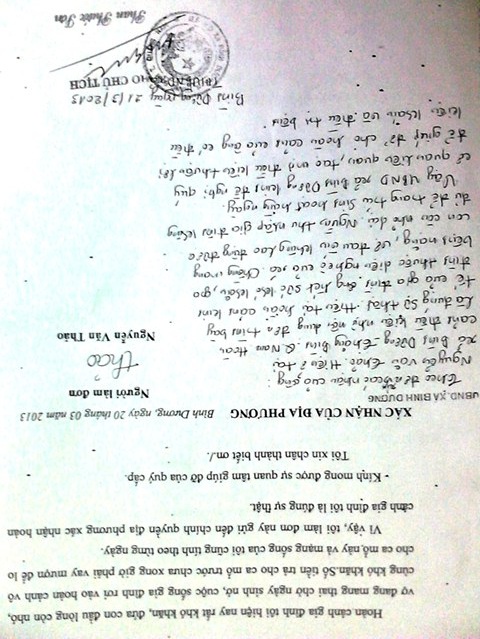 Hoàn cảnh gia đình tôi hiện nay rất khó khăn, đứa con đầu lòng còn nhỏ,
vợ đang mang thai chờ ngày sinh nở, cuộc sống gia đình rơi vào hoàn cảnh vô
cùng khó khăn.Số tiền trả cho ca mổ trước chưa xong giờ phải vay mượn để lo
cho ca mổ này và mạng sống của tôi cũng tính theo từng ngày.
Vì vậy, tôi làm đơn này gửi đến chính quyền địa phương xác nhận hoàn
cảnh gia đình tôi là đúng sự thật.
- Kính mong được sự quan tâm giúp đỡ của quý cấp.
Tôi xin chân thành cảm ơn./.
XÁC NHẬN CỦA ĐỊA PHƯƠNG
Bình Dương, ngày 20 tháng 03 năm 2013
UBND. XÃ BÌNH DƯƠNG
Người làm đơn
Thảo
Nguyễn Văn Thảo
Nguyễn Văn Thảo. Hiện ở tại
xã Bình Dương Thăng Bình Q Nam. Hoàn
cảnh thiếu kiến như nội dung đơn trình bày
là đúng sự thật. Hiện tại hoàn cảnh kinh
tế của gia đình ông hết sức khó khăn, gia
đình thuộc diện nghèo của xã. Ông mang
bệnh nặng, vợ đau yếu không lao động được
con còn nhỏ dại. Nguồn thu nhập gia đình không
đủ để trang trải sinh hoạt hằng ngày.
Vậy UBND xã Bình Dương kính đề nghị quý
cơ quan liên quan, tạo mọi điều kiện thuận lợi
để giúp đỡ cho hoàn cảnh của ông có điều
kiện khám và điều trị bệnh.
Bình Dương ngày 21/3/2013
CHỦ TỊCH
Phan Phước